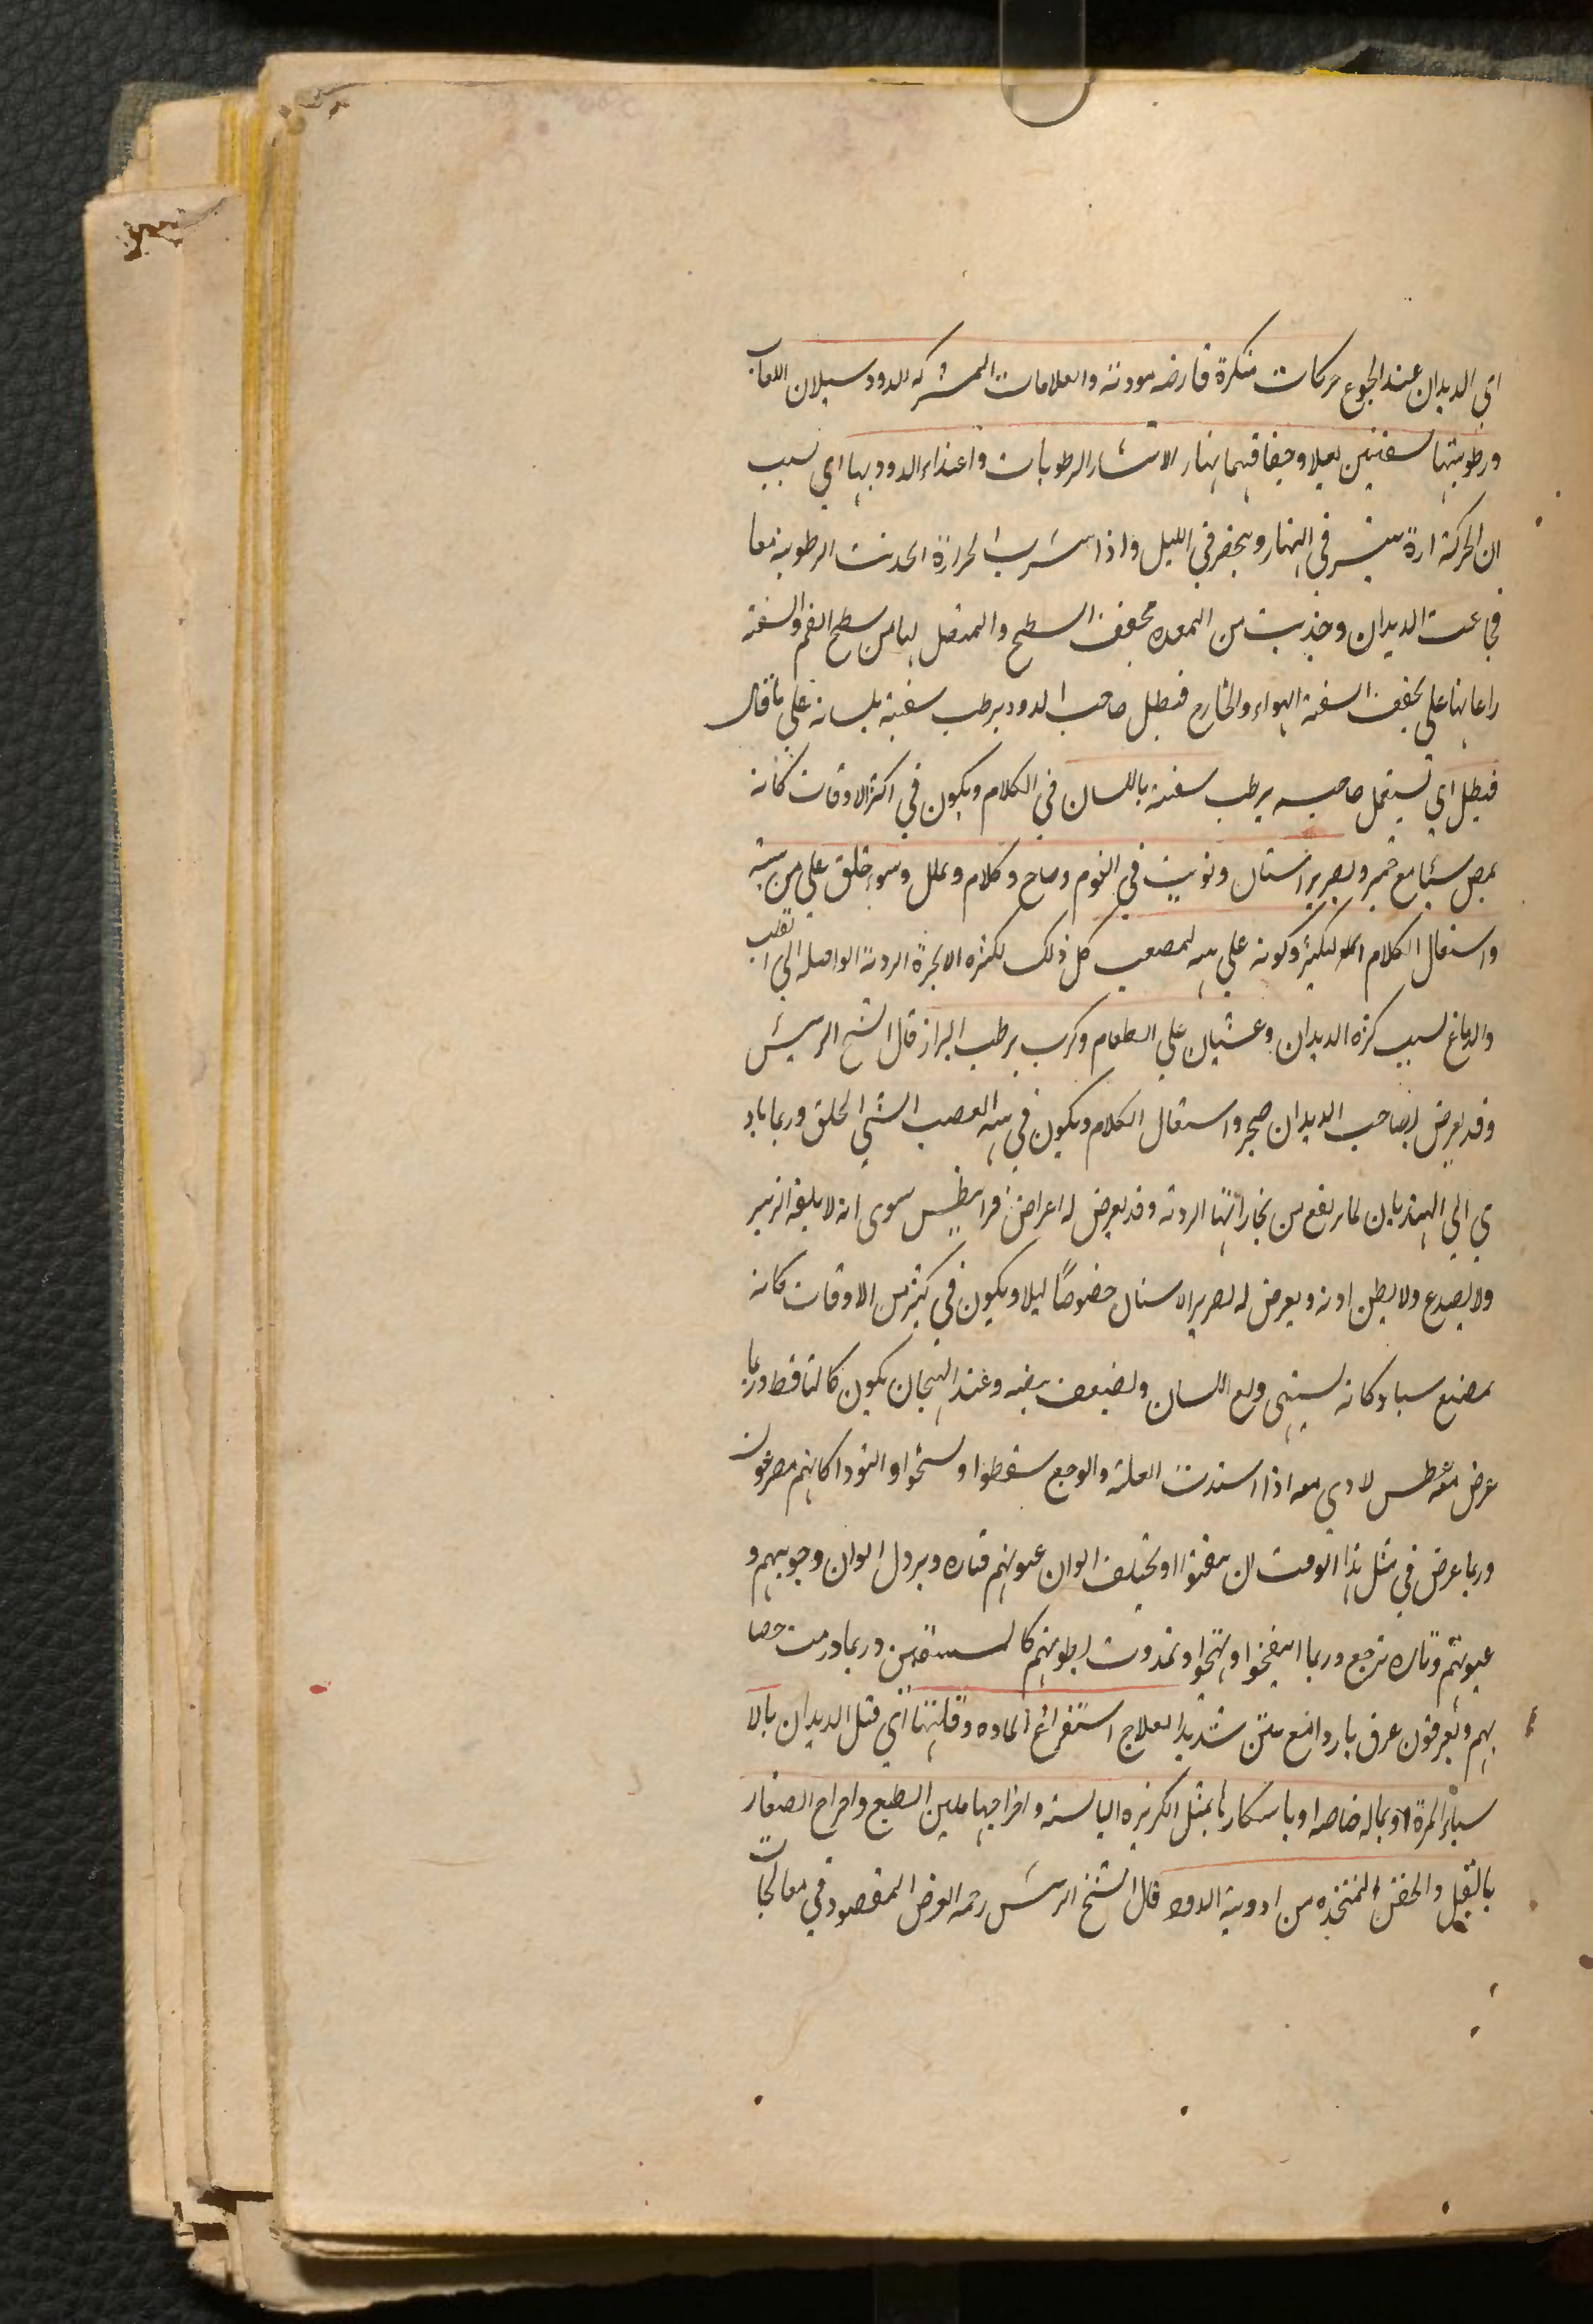 اي الديدان عند الجوع حركات منكرة قارضه موديه والعلامات المشتركه للدود سيلان اللعاب
ورطوبتها شفتين ليلا وجفافهما نهار الانتشار الرطوبات واغتذاء الدود بها اي بسبب
ان الحركة ارة ينتشر في النهار وينحصر في الليل واذا انتشرت الحرارة انجذبت الرطوبة معا
فجاعت الديدان وجذبت من المعده مجفف السطح والمتصل لها من سطح الفم والشفة
راعانها على تجفف الشفة الهواء والخارج فيظل صاحب الدود يرطب شفته بلسانه على ما قال
فيظل اي يستعمل صاحبه يرطب شفته باللسان في الكلام ويكون في اكثر الاوقات كانه
يمص شيئا مع ضجر وبصرير اسنان وتويب في النوم وصاح وكلام وتململ وسوء خلق على من ينبه
واستقال الكلام لكثير وكونه على هيه لمصعب كل ذلك لكثره الابخرة الرديه الواصله الى القلب
والدماغ بسبب كثره الديدان وغشيان على الطعام وكرب يرطب البراز قال الشيخ الرئيس
وقد يعرض لصاحب الديدان ضجر واستقال الكلام ويكون في هيه الغصب السيئ الخلق وربما باد
ي الى الهذيان لما يرتفع من بخاراتها الرديه وقد يعرض له اعراض فرانيطس سوى انه لا يلقط الزئبر
ولا يصدع ولا يطن اذنه ويعرض له تصرير الاسنان خصوصًا ليلا ويكون في كثير من الاوقات كانه
يمضغ شيا وكانه يشتهي دلع اللسان ويضعف نبضه وعند الهيجان يكون كالساقط وربما
عرض معطس لاذي معه اذا اشتدت العلة والوجع سقطوا وتشنجوا والتووا كانهم مصرعون
وربما عرض في مثل هذا الوقت ان يتقيؤا او تختلف الوان عيونهم فتاره ويزول الوان وجوههم و
عيونهم وتاره ترجع وربما انتفخوا وتهيجوا وتمددت بطونهم كالمستسقين وربما ورمت خصا
هم ويعرقون عرق بارد امع نتن شديد العلاج استفراغ الماده وقلتها اي قتل الديدان بالا
شياء المرة او بماله خاصه او باسكارها بمثل الكزبره اليابسه واخراجها بلين الطبع واخراج الصغار
بالفتل والحقن المتخذه من ادوية الدود قال الشيخ الرئيس رحمه الغرض المقصود في معالجات